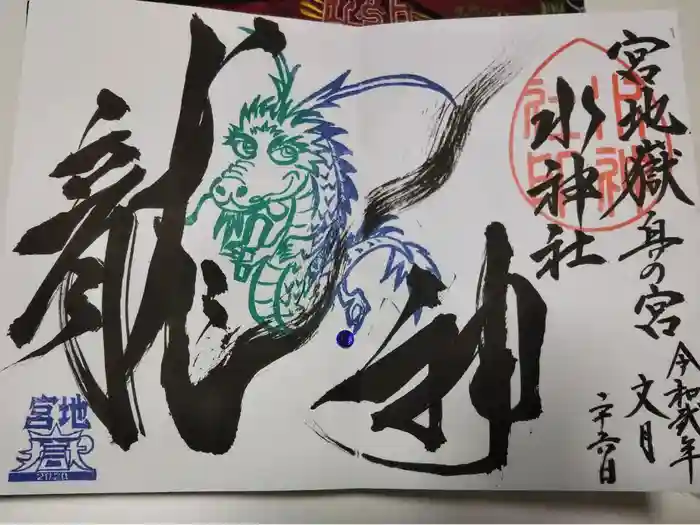 宮地嶽奥の宮
水神社
水神社印
令和弐年
文月
二十六日
龍神
宮地
嶽
2020